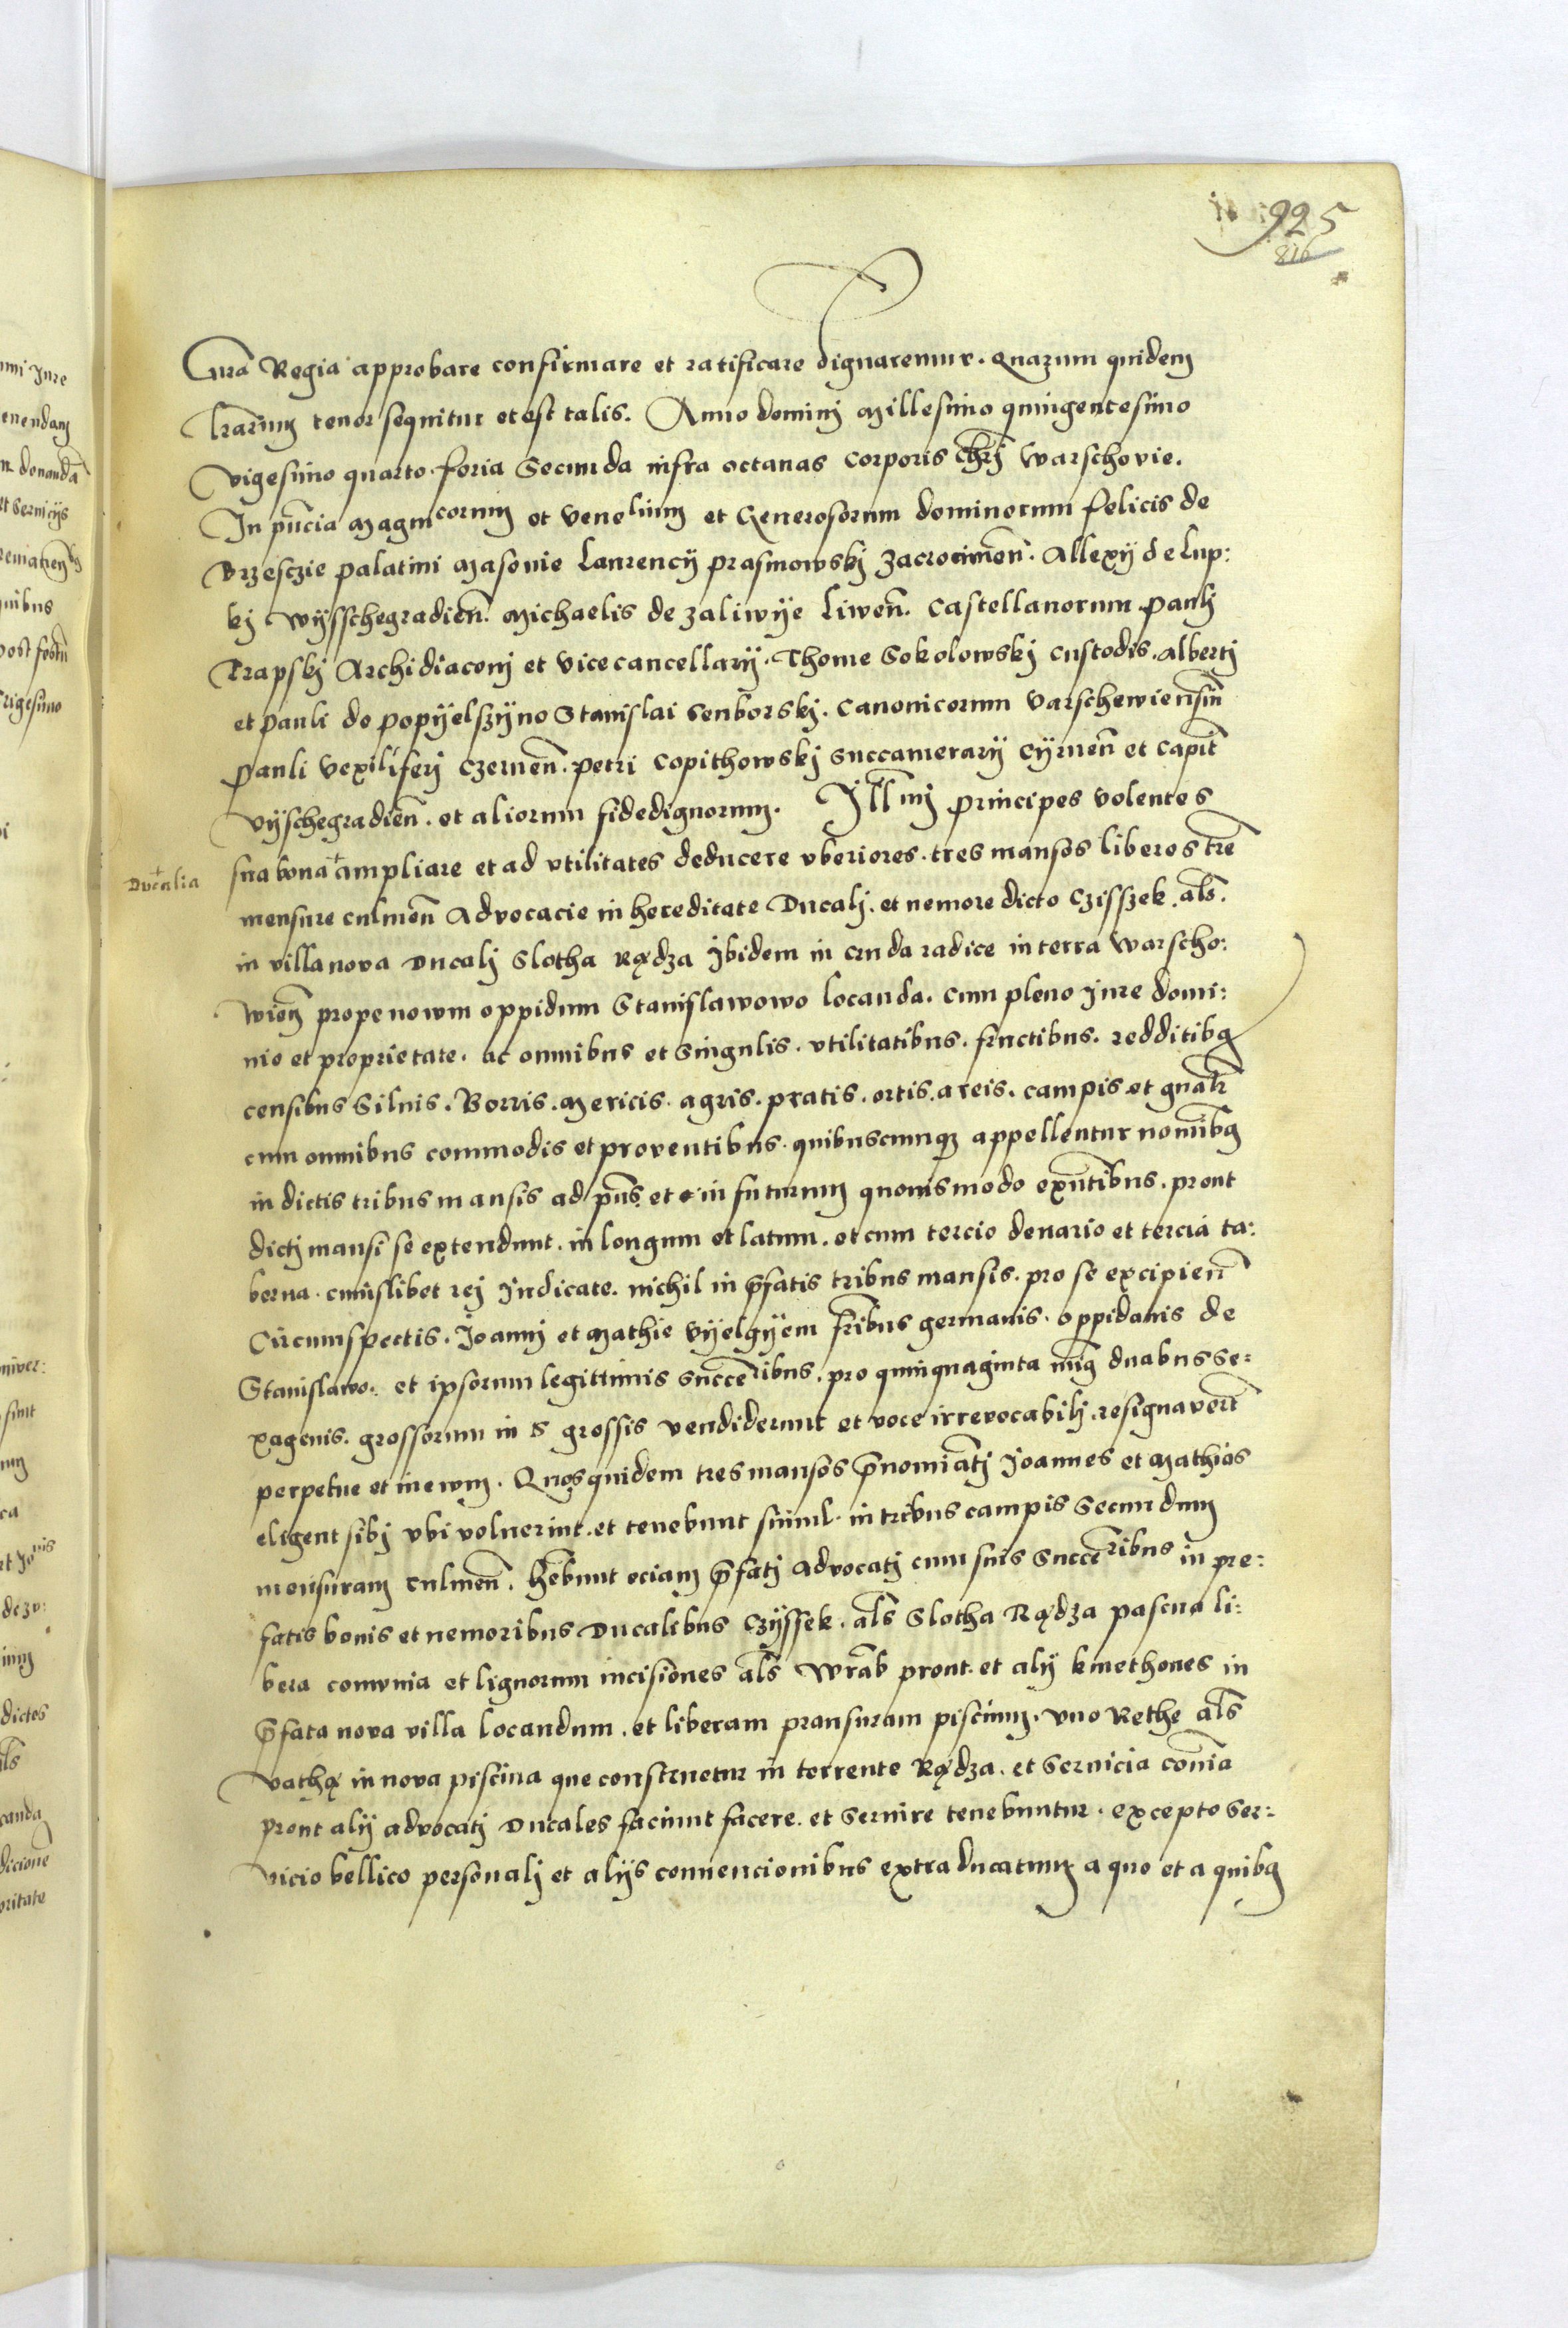 925
816
n̄ra Regia approbare confirmare et ratificare dignaremur. Quarum quidem
l̄rarum tenor sequitur et est talis. Anno dominj Millesimo quingentesimo
vigesimo quarto. feria Secunda infra octauas Corporis chr̄j warschovie.
In pn̄cia Magnicorum et venelium et Generosorum dominorum felicis de
Brzesczie palatini Masovie Laurencij prasmowskj zacrocimen̄. Allexij de Lup:
kj wysschegradien̄. Michaelis de zaliwye Liwen̄. Castellanorum. paulj
Trapskj Archidiaconj et vicecancellarij. Thome Sokolowskj custodis. Albertj
et pauli de popyelszyno Stanislai Senborskj. Canonicorum varschewiensīu
pauli vexiliferj Czernen̄. petri Copithowskj Succamerarij Cyrnen̄ et Capit̄
vyschegradien̄. et aliorum fidedignorum. Jll̄mj principes volentes
Ducalia
sua bona + ampliare et ad vtilitates deducere vberiores. tres mansos liberos tr̄e
mensure culmen̄ Advocacie in hereditate Ducalj. et nemore dicto Czisszek. al̄s.
in villa nova Ducalj Slotha Rądza Jbidem in cruda radice in terra warscho:
wien̄ prope nowm oppidum Stanislawowo locanda. cum pleno Jure domi:
nio et proprietate. ac omnibus et Singulis. vtilitatibus. fructibus. redditibq
censibus Siluis. Borris. Mericis. agris. pratis. ortis. areis. campis et gn̄alr̄
cum omnibus commodis et proventibus. quibuscunqz appellentur nomībq
in dictis tribus mansis ad pn̄s et in futurum quouismodo exn̄tibus. prout
dictj mansi se extendunt. in longum et latum. et cum tercio denario et tercia ta:
berna. cuiuslibet rej Judicate. nichil in p̄fatis tribus mansis. pro se excipien̄
Circumspectis. Joannj et Mathie vyelgyem fr̄ibus germanis. oppidanis de
Stanislawo. et ipsorum legittimis Succēribus. pro quinquaginta duabus se:
xagenis. grossorum in grossis vendiderunt et voce irrevocabilj. resignaver̄t
perpetue et in ewm. Quos quidem tres mansos p̄nomīatj Joannes et Mathias
eligent sibj vbi voluerint. et tenebunt simul. in tribus campis Secundum
mensuram culmen̄. hēbunt eciam p̄fatj Advocatj cum suis Succēribus in pre:
fatis bonis et nemoribus Ducalibus Czyssek. al̄s Slotha Rądza pascua li:
bera comunia et lignorum incisiones al̄s wrāb prout. et alij kmethones in
p̄fata nova villa locandum. et liberam pransuram piscium. vno Rethe al̄s
vathą in nova piscina que construetur in torrente Rądza. et Servicia com̄ia
prout alij advocatj Ducales faciunt facere. et Servire tenebuntur. excepto Ser:
vicio bellico personalj et alijs convencionibus extra ducatum a quo et a quibq